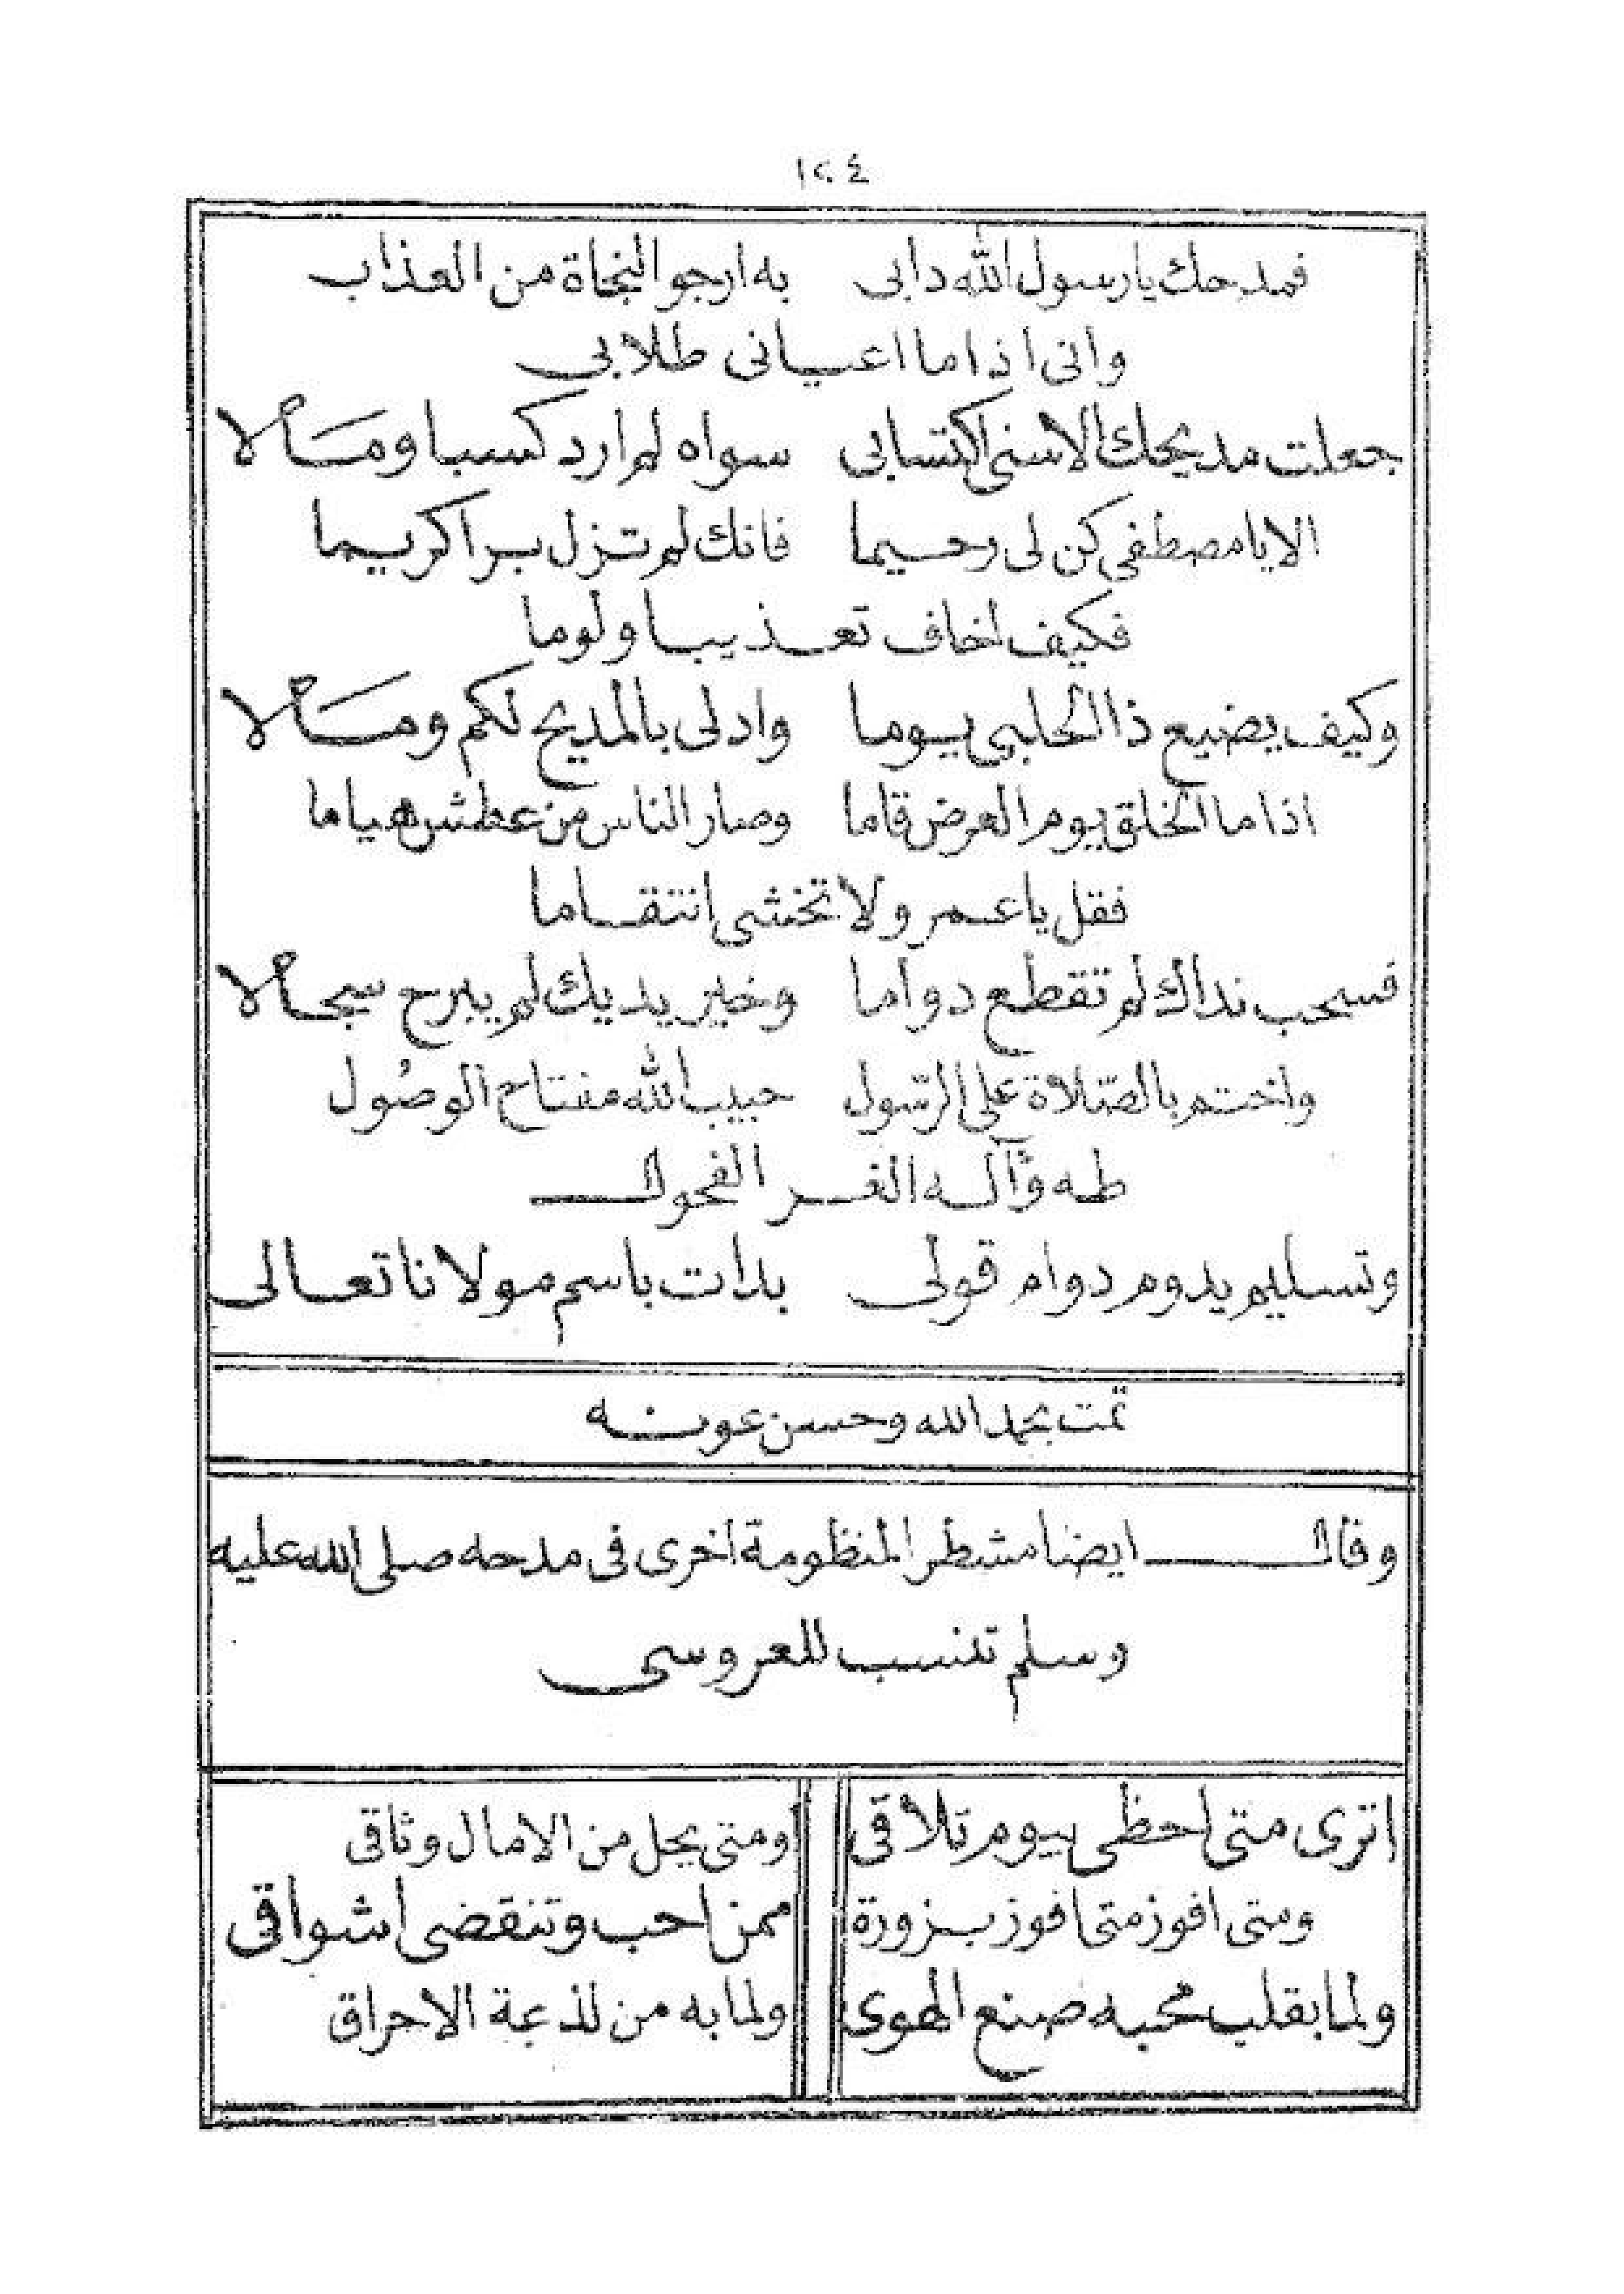 ١٢٤
فمدحك يا رسول الله دابى به ارجو النجاة من العذاب
وانى اذا ما اعيانى طلابى
جعلت مديحك الاسنى اكتسابى سواه لم ارد كسبا ومالا
الا يا مصطفى كن لى رحيما فانك لم تزل برا كريما
فكيف اخاف تعذيبا ولوما
وكيف يضيع ذا الحلبى يوما وادلى بالمديح لكم ومالا
اذا ما الخلق يوم العرض قاما وصار الناس من عطش هياما
فقل يا عمر ولا تخشى انتقاما
فسحب نداك لم تقطع دواما وخير يديك لم يبرح سجالا
واختم بالصّلاة على الرّسول حبيب الله مفتاح الوصُول
طه وآله الغر الفحول
وتسليم يدوم دوام قولى بدات باسم مولانا تعالى
تمت بحمد الله وحسن عونه
وقال ايضا مشطرا لمنظومة اخرى فى مدحه صلى الله عليه
وسلم تنسب للعروسى
اترى متى احظى بيوم تلاقى ومتى يحل من الامال وثاقى
ومتى افوز متى افوز بزورة ممن احب وتنقضى اشواقى
ولما بقلب محبه صنع الهوى ولما به من لذعة الاحراق